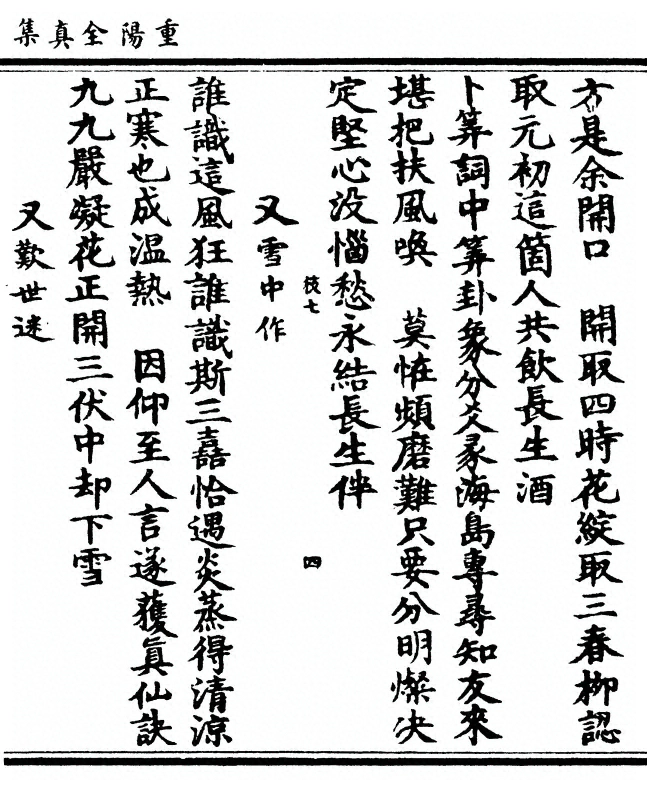 重陽全真集
方是余開口　開取四時花綻取三春柳認
取元初這箇人共飲長生酒
卜筭詞中筭卦象分爻彖海島專尋知友來
堪把扶風喚　莫恠頻磨難只要分明燦決
定堅心没惱愁永結長生伴
枝七　四
又雪中作
誰識這風狂誰識斯三嘉恰遇炎蒸得清涼
正寒也成温熱　因仰至人言遂獲真仙訣
九九嚴凝花正開三伏中却下雪
又歎世迷